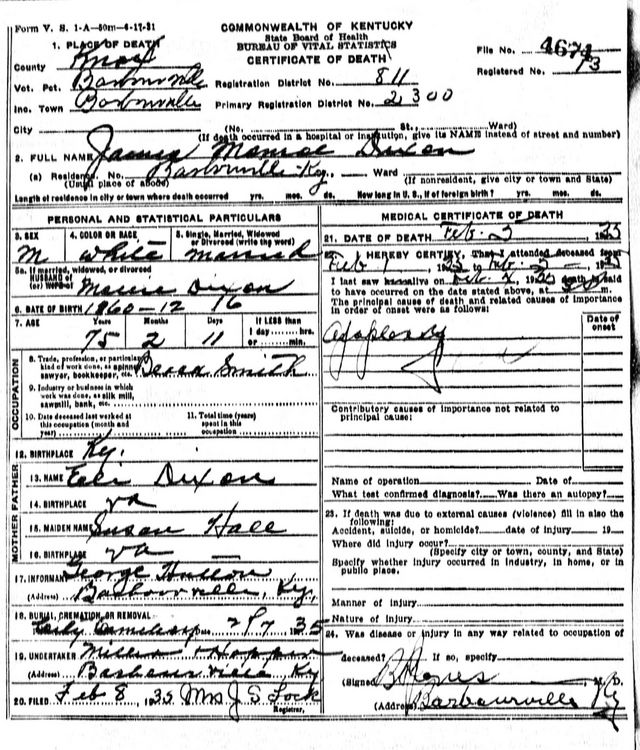 Form V. S. 1-A—50m—4-17-31
COMMONWEALTH OF KENTUCKY
State Board of Health
BUREAU OF VITAL STATISTICS
CERTIFICATE OF DEATH
File No. 4671
Registered No. 13
1. PLACE OF DEATH
County Knox
Vot. Pct. Barbourville
Inc. Town Barbourville
Registration District No. 811
Primary Registration District No. 2300
City (No. St., Ward)
(If death occurred in a hospital or institution, give its NAME instead of street and number)
2. FULL NAME James Monroe Dixon
(a) Residence. No. Barbourville Ky., Ward
(Usual place of abode) (If nonresident, give city or town and State)
Length of residence in city or town where death occurred yrs. mos. ds. How long in U. S., if of foreign birth? yrs. mos. ds.
PERSONAL AND STATISTICAL PARTICULARS
3. SEX M
4. COLOR OR RACE white
5. Single, Married, Widowed or Divorced (write the word) married
5a. If married, widowed, or divorced
HUSBAND of
(or) WIFE of Dixon
6. DATE OF BIRTH 1860-12 16
7. AGE Years 75 Months 2 Days 11 If LESS than 1 day hrs. or min.
OCCUPATION
8. Trade, profession, or particular kind of work done, as spinner, sawyer, bookkeeper, etc. Smith
9. Industry or business in which work was done, as silk mill, sawmill, bank, etc.
10. Date deceased last worked at this occupation (month and year)
11. Total time (years) spent in this occupation
12. BIRTHPLACE Ky.
FATHER
13. NAME Eli Dixon
14. BIRTHPLACE va
MOTHER
15. MAIDEN NAME Susan Hall
16. BIRTHPLACE va —
17. INFORMANT George
(Address) Barbourville, Ky.,
18. BURIAL, CREMATION, OR REMOVAL
Date 2/7 1935
19. UNDERTAKER Hopper
(Address) Barbourville Ky
20. FILED Feb 8, 1935 Mrs J S Lock
Registrar.
MEDICAL CERTIFICATE OF DEATH
21. DATE OF DEATH Feb. 1935
22. I HEREBY CERTIFY, That I attended deceased from
Feb 1, 1935 to Feb. 1935
I last saw h alive on death is said
to have occurred on the date stated above, at m.
The principal cause of death and related causes of importance
in order of onset were as follows:
Date of onset
Apoplexy
Contributory causes of importance not related to
principal cause:
Name of operation Date of
What test confirmed diagnosis? Was there an autopsy?
23. If death was due to external causes (violence) fill in also the
following:
Accident, suicide, or homicide? date of injury 19
Where did injury occur?
(Specify city or town, county, and State)
Specify whether injury occurred in industry, in home, or in
public place.
Manner of injury
Nature of injury
24. Was disease or injury in any way related to occupation of
deceased? If so, specify
(Signed) M. D.
(Address) Barbourville Ky